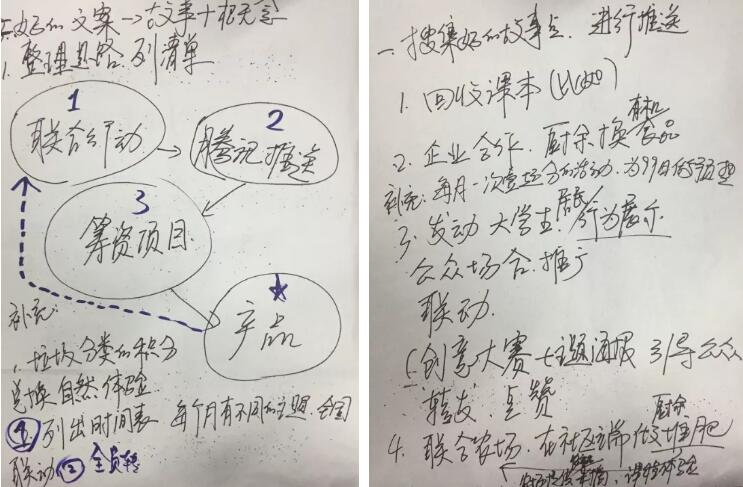 好的文案→故事+
1. 整理思路. 列清单
1
联合行动
2
腾讯推送
3
筹资项目
★
产品
补充:
1. 垃圾分类的积分
兑换自然体验
④列出时间表 每个月有不同的主题. 全国
联动 ②
一. 搜集好的故事点. 进行推送
1. 回收课本(比如)
有机
2. 企业合作. 厨余换食品
补充: 每月一次 的活动. 为99日
居民
3. 发动大学生. 行为展示
公众场合. 推广
联动.
(创意大赛+主题海报 引导公众
转发. 点赞
厨余
4. 联合农场. 在社区 做堆肥